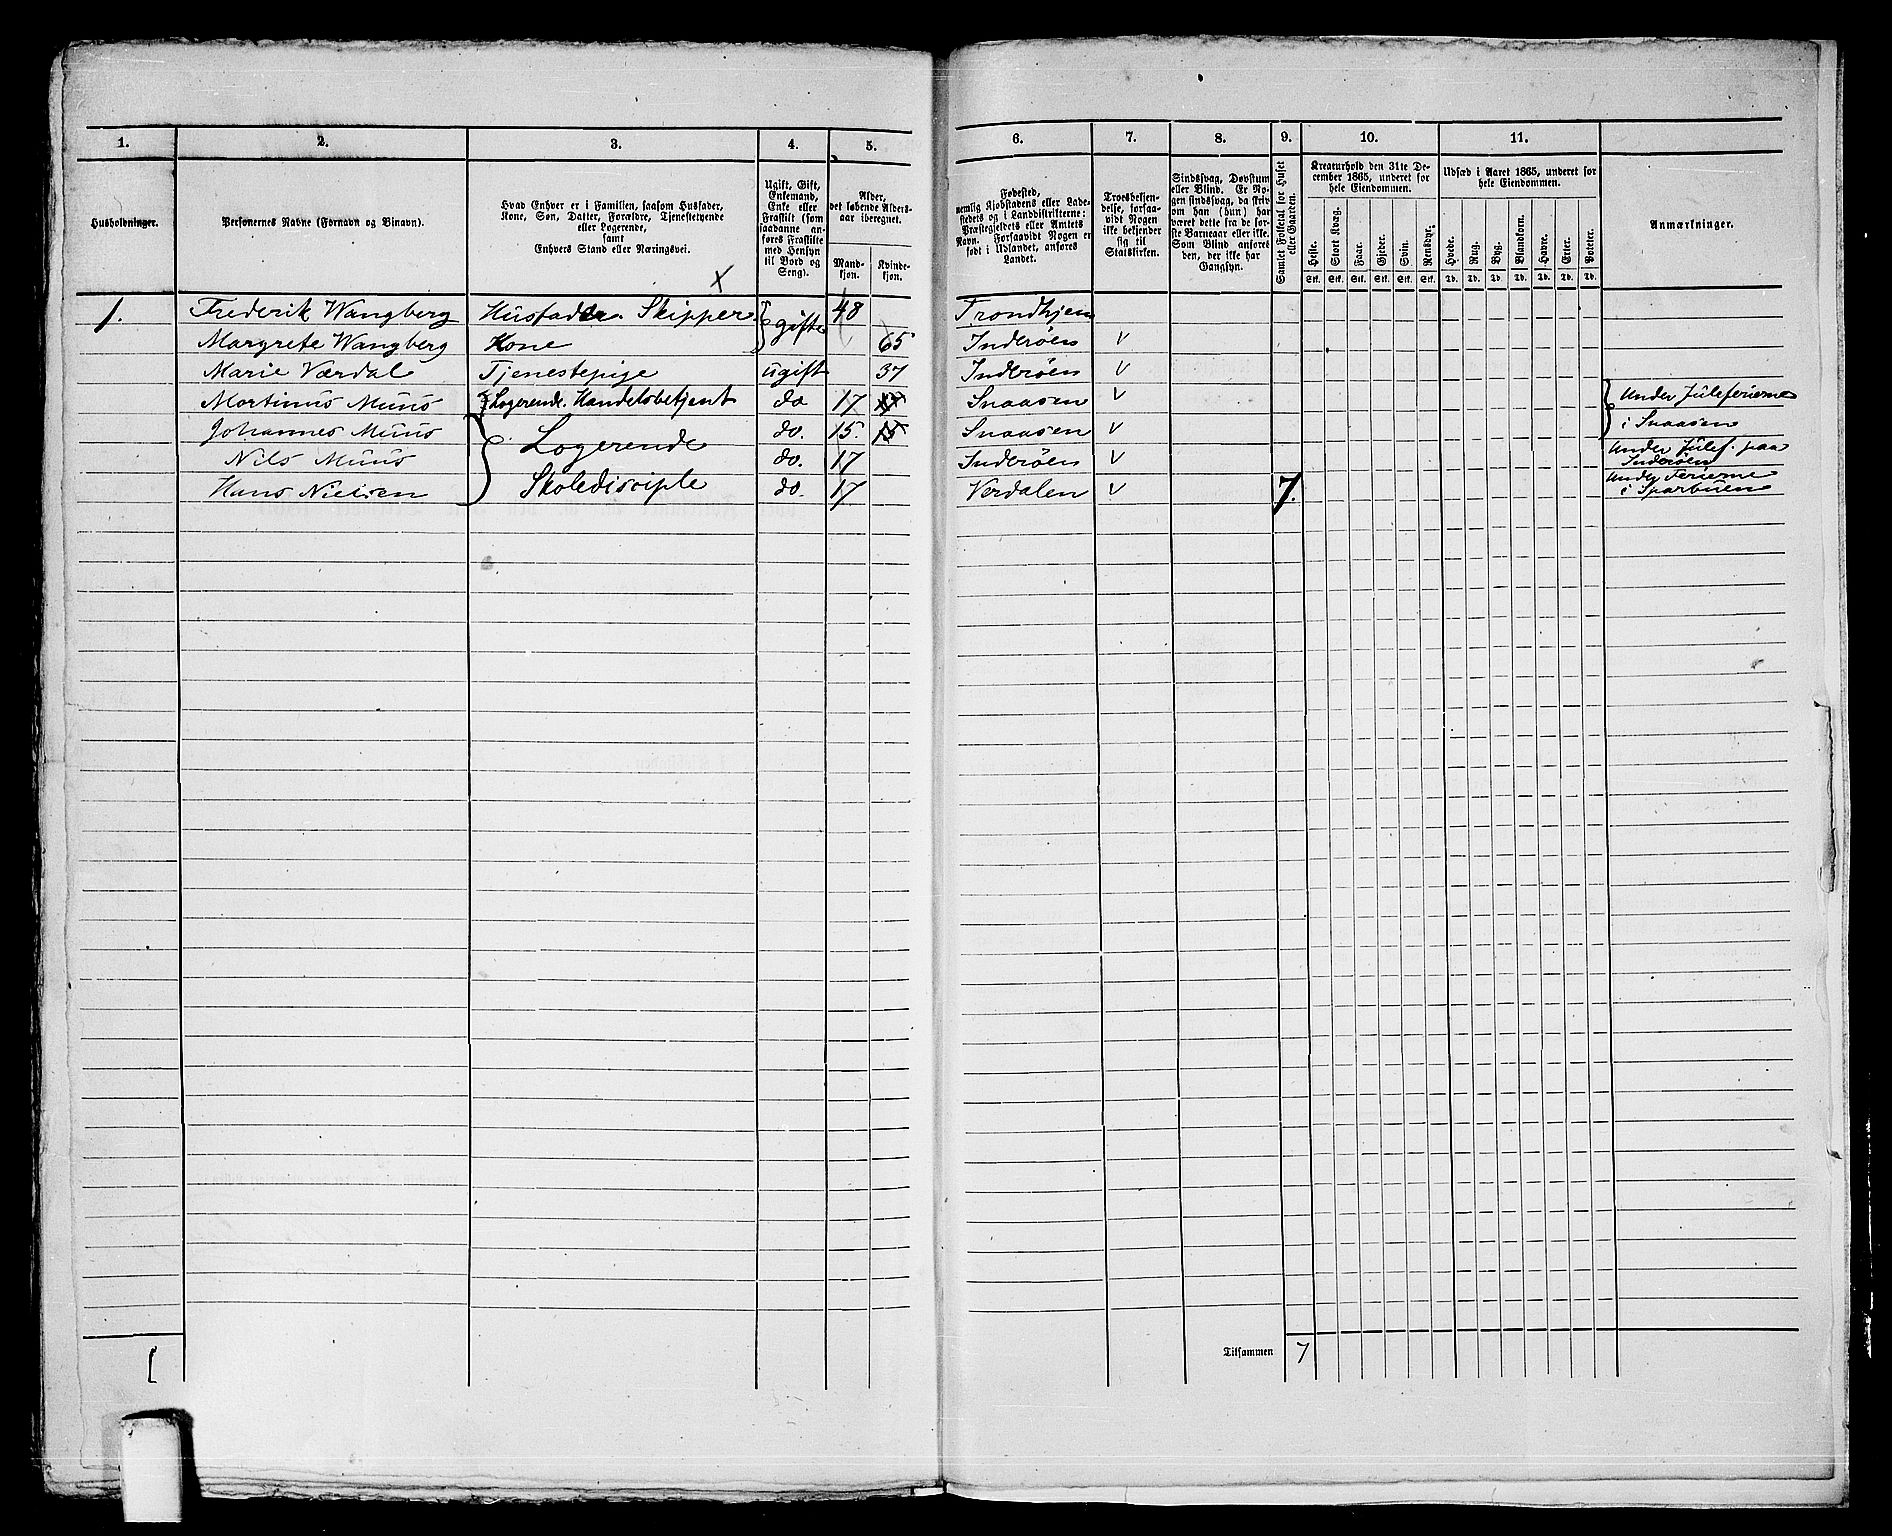 1. 2. 3. 4. 5. 6. 7. 8. 9. 10. 11.
Husholdninger.
Personernes Navne (Fornavn og Binavn).
Hvad Enhver er i Familien, saasom Husfader,
Kone, Søn, Datter, Forældre, Tjenestetyende
eller Logerende,
samt
Enhvers Stand eller Næringsvei.
Ugift, Gift,
Enkemand,
Enke eller
Fraskilt (som
saadanne an-
føres Fraskilte
med Hensyn
til Bord og
Seng).
Alder,
det løbende Alders-
aar iberegnet.
Mand-
kjøn.
Kvinde-
kjøn.
Fødested,
nemlig Kjøbstadens eller Lade-
stedets og i Landdistrikterne:
Præstegjeldets eller Amtets
Navn. Forsaavidt Nogen er
født i Udlandet, anføres
Landet.
Troesbekjen-
delse, forsaa-
vidt Nogen
ikke bekjender
sig til
Statskirken.
Sindssvag, Døvstum
eller Blind. Er No-
gen sindssvag, da skriv
om han (hun) har
været dette fra de før-
ste Barneaar eller ikke.
Som Blind anføres
den, der ikke har
Gangsyn.
Samlet Folketal for Huset
eller Gaarden.
Kreaturhold den 31te De-
cember 1865, underet for
hele Eiendommen.
Heste. Stort Kvæg. Faar. Gjeder. Svin. Rensdyr.
Stk. Stk. Stk. Stk. Stk. Stk.
Udsæd i Aaret 1865, underet for
hele Eiendommen.
Hvede. Rug. Byg. Blandkorn. Havre. Erter. Poteter.
Td. Td. Td. Td. Td. Td. Td.
Anmærkninger.
1. Frederik Wangberg Husfader. Skipper gifte 48 Trondhjem
Margrete Wangberg Kone 65 Inderöen v
Marie Værdal Tjenestepige ugift 37 Inderöen v
Mortinus Muus Logerende. Handelsbetjent do 17 Snaasen v Under Juleferierne
Johannes Muus Logerende do. 15. 15 Snaasen v i Snaasen
Nils Muus do. 17 Inderöen v Under Julef. paa Inderöen
Hans Nielsen Skoledisciple do. 17. Verdalen v 7. Under Ferierne i Sparbuen
Tilsammen 7